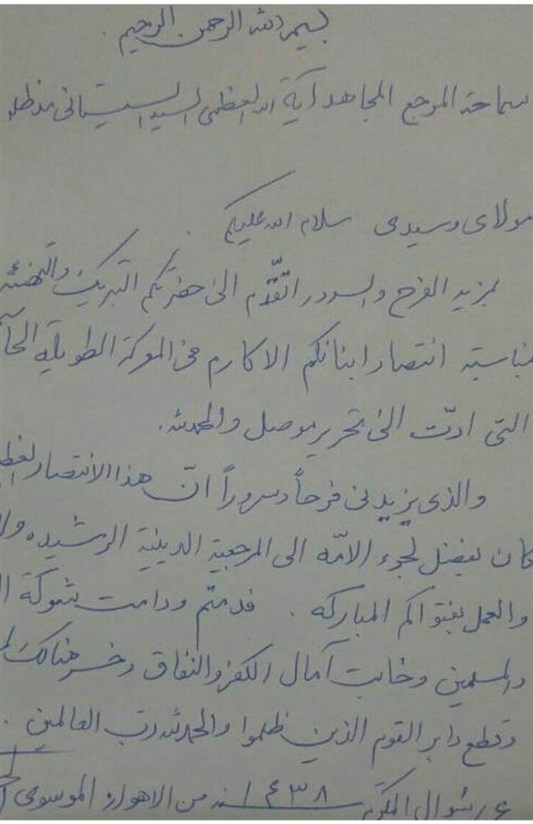 بسم الله الرحمن الرحيم .
سماحة المرجع المجاهد آية الله العظمى السيد السيستانى مدظله
مولاى وسيدى سلام الله عليكم .
بمزيد الفرح والسرور اتقدّم الى حضرتكم التبريك والتهنئة
بمناسبة انتصار ابنائكم الاكارم فى المعركة الطويلة
التى ادّت الى تحرير موصل والحمدلله .
والذى يزيدنى فرحاً وسروراً انّ هذا الانتصار
كان بفضل لجوء الامّه الى المرجعية الدينية الرشيده
والعمل بفتواكم المباركه . فدمتم ودامت شوكة
والمسلمين وخابت آمال الكفر والنفاق وخسر هنالك
وقطع دابر القوم الذين ظلموا والحمدلله رب العالمين .
شوال المكرّم ١٤٣٨ من الاهواز الموسوى